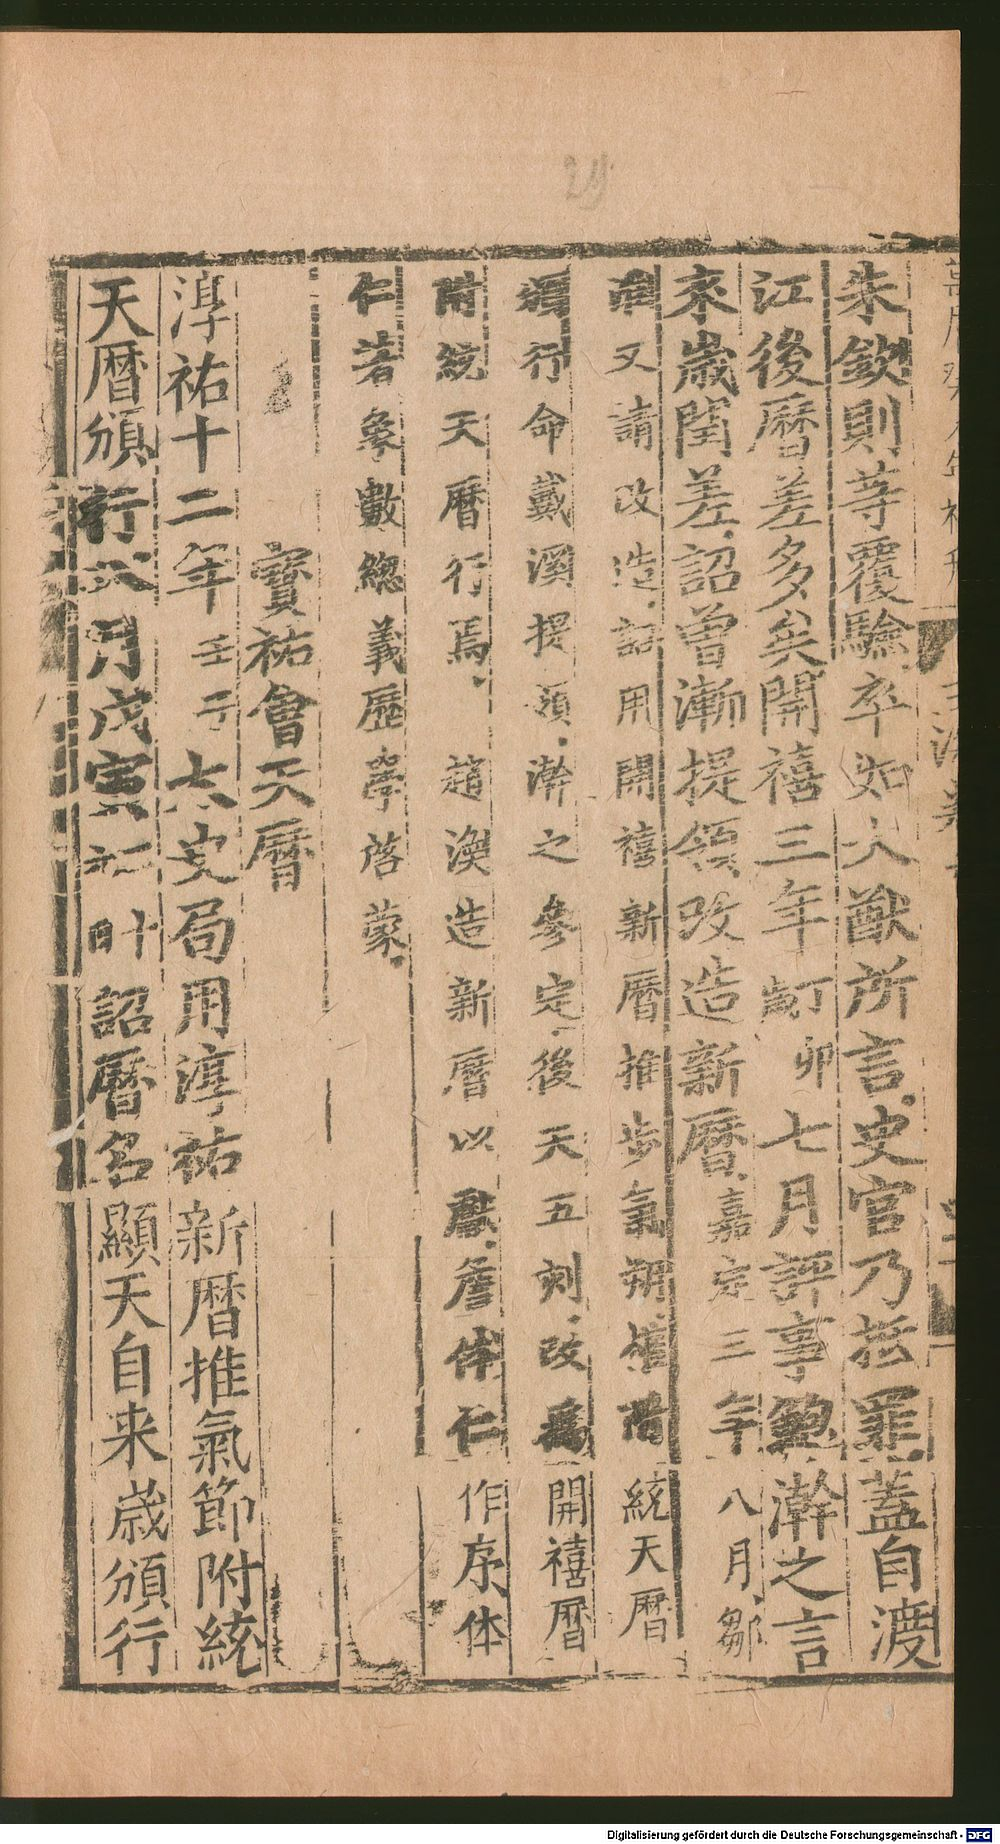 29
朱欽則等覆驗卒如大猷所言史官乃抵罪蓋自渡
江後曆差多矣開禧三年丁卯歲七月評事鮑澣之言
來歲閏差詔曾漸提領改造新曆嘉定三年八月鄒
淮又請改造詔用開禧新曆推步氣朔權附統天曆
頒行命戴溪提領澣之參定後天五刻改爲開禧曆
附統天曆行焉趙渙造新曆以獻詹體仁作序体
仁著象數總義歷學啓蒙
寶祐會天曆
淳祐十二年壬子太史局用淳祐新曆推氣節附統
天曆頒行 月戊寅 日 詔曆名顯天自来歲頒行
Digitalisierung gefördert durch die Deutsche Forschungsgemeinschaft - DFG